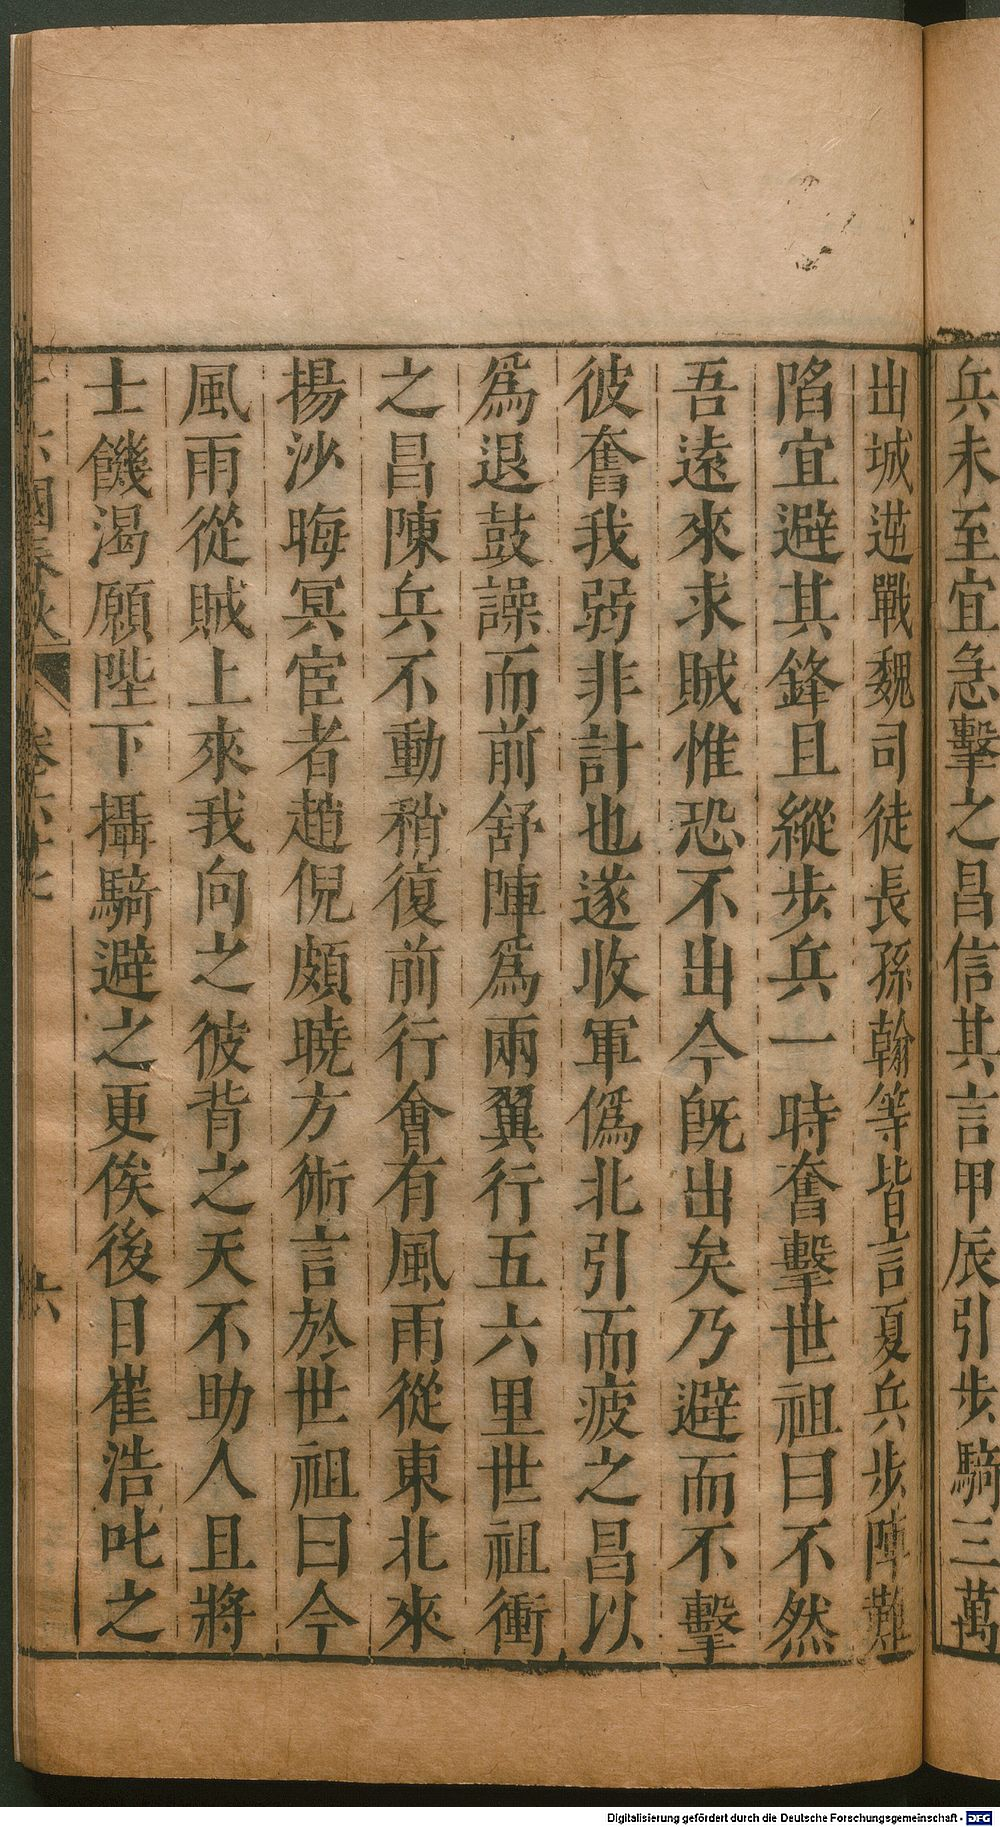 兵未至宜急擊之昌信其言甲辰引步騎三萬
出城逆戰魏司徒長孫翰等皆言夏兵步陣難
陷宜避其鋒且縱步兵一時奮擊世祖曰不然
吾遠來求賊惟恐不出今旣出矣乃避而不擊
彼奮我弱非計也遂收軍僞北引而疲之昌以
爲退鼓譟而前舒陣爲兩翼行五六里世祖衝
之昌陳兵不動稍復前行會有風雨從東北來
揚沙晦冥宦者趙倪頗曉方術言於世祖曰今
風雨從賊上來我向之彼背之天不助人且將
士饑渴願陛下攝騎避之更俟後日崔浩叱之
十六國春秋 卷六十七 六
Digitalisierung gefördert durch die Deutsche Forschungsgemeinschaft - DFG